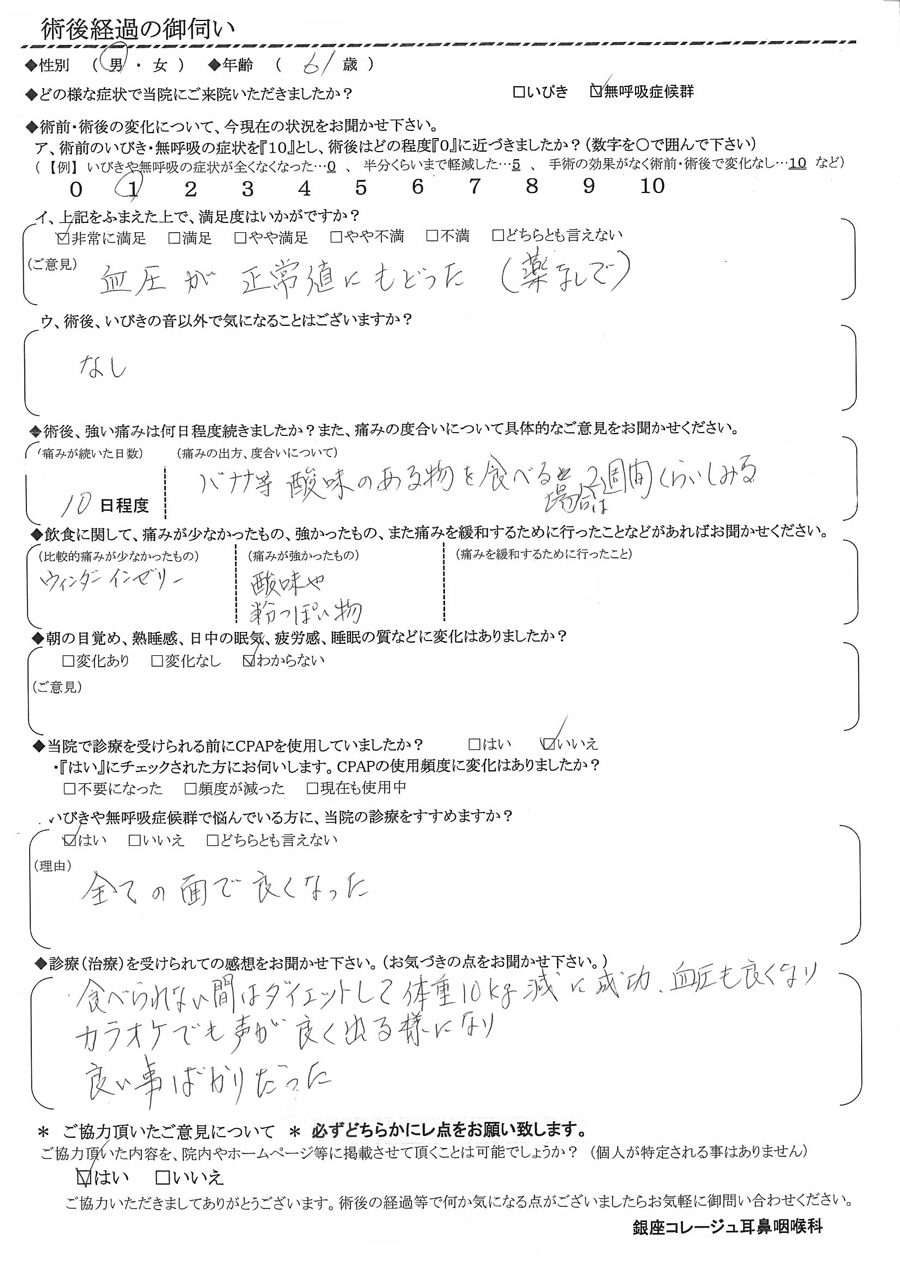 術後経過の御伺い
◆性別 (男・女) ◆年齢 (61歳)
◆どの様な症状で当院にご来院いただきましたか? □いびき ☑無呼吸症候群
◆術前・術後の変化について、今現在の状況をお聞かせ下さい。
ア、術前のいびき・無呼吸の症状を『10』とし、術後はどの程度『0』に近づきましたか?(数字を○で囲んで下さい)
(【例】いびきや無呼吸の症状が全くなくなった…0 、 半分くらいまで軽減した…5 、 手術の効果がなく術前・術後で変化なし…10 など)
0 1 2 3 4 5 6 7 8 9 10
イ、上記をふまえた上で、満足度はいかがですか?
☑非常に満足 □満足 □やや満足 □やや不満 □不満 □どちらとも言えない
(ご意見) 血圧が正常値にもどった (薬なしで)
ウ、術後、いびきの音以外で気になることはございますか?
なし
◆術後、強い痛みは何日程度続きましたか?また、痛みの度合いについて具体的なご意見をお聞かせください。
(痛みが続いた日数) (痛みの出方、度合いについて)
10日程度 バナナ等 酸味のある物を食べる場合は2週間くらいしみる
◆飲食に関して、痛みが少なかったもの、強かったもの、また痛みを緩和するために行ったことなどがあればお聞かせください。
(比較的痛みが少なかったもの) (痛みが強かったもの) (痛みを緩和するために行ったこと)
ウィンダーインゼリー 酸味や
粉っぽい物
◆朝の目覚め、熟睡感、日中の眠気、疲労感、睡眠の質などに変化はありましたか?
□変化あり □変化なし ☑わからない
(ご意見)
◆当院で診療を受けられる前にCPAPを使用していましたか? □はい ☑いいえ
・『はい』にチェックされた方にお伺いします。CPAPの使用頻度に変化はありましたか?
□不要になった □頻度が減った □現在も使用中
いびきや無呼吸症候群で悩んでいる方に、当院の診療をすすめますか?
☑はい □いいえ □どちらとも言えない
(理由)
全ての面で良くなった
◆診療(治療)を受けられての感想をお聞かせ下さい。(お気づきの点をお聞かせ下さい。)
食べられない間はダイエットして体重10kg減に成功、血圧も良くなり
カラオケでも声が良く出る様になり
良い事ばかりだった
* ご協力頂いたご意見について * 必ずどちらかにレ点をお願い致します。
ご協力頂いた内容を、院内やホームページ等に掲載させて頂くことは可能でしょうか? (個人が特定される事はありません)
☑はい □いいえ
ご協力いただきましてありがとうございます。術後の経過等で何か気になる点がございましたらお気軽に御問い合わせください。
銀座コレージュ耳鼻咽喉科